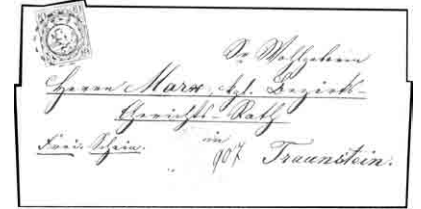 Sr. Wohlgeboren
Herrn Marx, kgl. Bezirks-
Gerichts-Rath
in
Frei. Schein.
907 Traunstein.